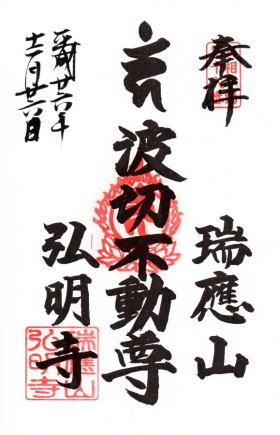 奉拝
瑞應山
波切不動尊
弘明寺
平成廿六年
十二月廿六日
瑞應山
弘明寺